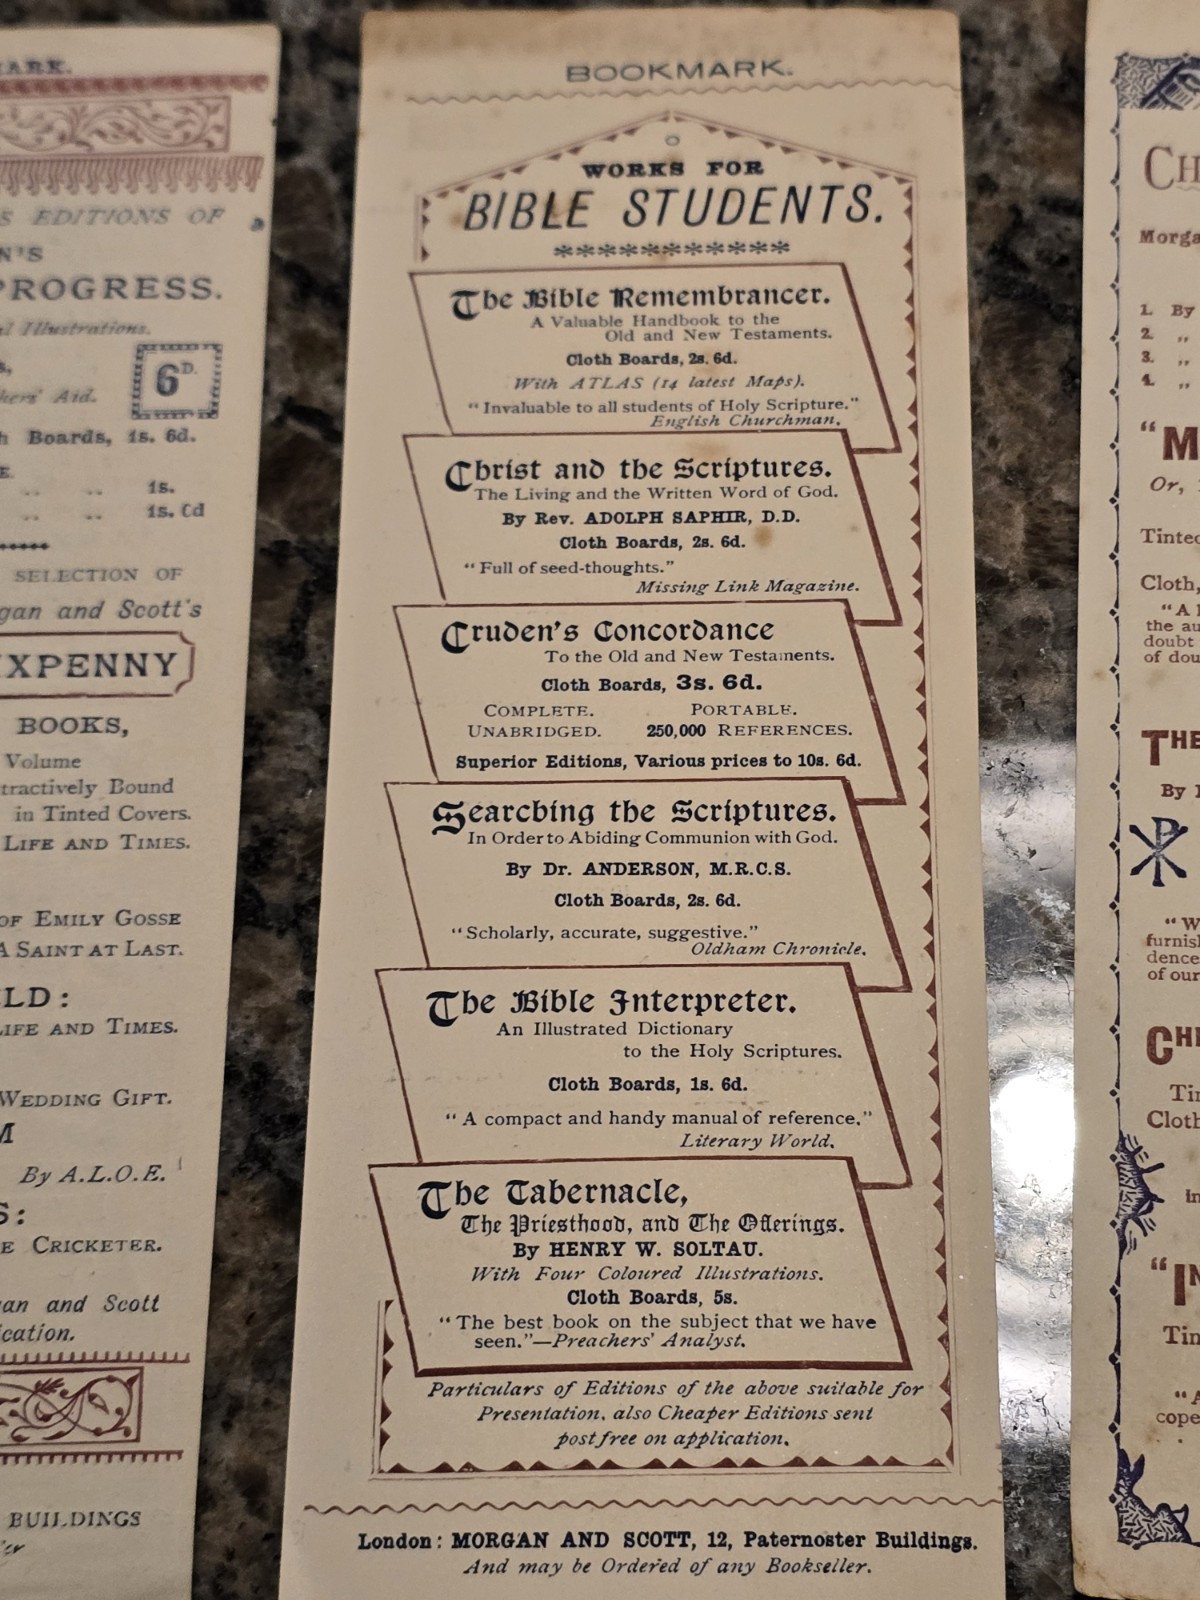 BOOKMARK.
WORKS FOR
BIBLE STUDENTS.
***********
The Bible Remembrancer.
A Valuable Handbook to the
Old and New Testaments.
Cloth Boards, 2s. 6d.
With ATLAS (14 latest Maps).
"Invaluable to all students of Holy Scripture."
English Churchman.
Christ and the Scriptures.
The Living and the Written Word of God.
By Rev. ADOLPH SAPHIR, D.D.
Cloth Boards, 2s. 6d.
"Full of seed-thoughts."
Missing Link Magazine.
Cruden's Concordance
To the Old and New Testaments.
Cloth Boards, 3s. 6d.
COMPLETE. PORTABLE.
UNABRIDGED. 250,000 REFERENCES.
Superior Editions, Various prices to 10s. 6d.
Searching the Scriptures.
In Order to Abiding Communion with God.
By Dr. ANDERSON, M.R.C.S.
Cloth Boards, 2s. 6d.
"Scholarly, accurate, suggestive."
Oldham Chronicle.
The Bible Interpreter.
An Illustrated Dictionary
to the Holy Scriptures.
Cloth Boards, 1s. 6d.
"A compact and handy manual of reference."
Literary World.
The Tabernacle,
The Priesthood, and The Offerings.
By HENRY W. SOLTAU.
With Four Coloured Illustrations.
Cloth Boards, 5s.
"The best book on the subject that we have
seen."—Preachers' Analyst.
Particulars of Editions of the above suitable for
Presentation, also Cheaper Editions sent
post free on application.
London: MORGAN AND SCOTT, 12, Paternoster Buildings.
And may be Ordered of any Bookseller.
EDITIONS OF
PROGRESS.
Illustrations.
6D.
Aid.
Boards, 1s. 6d.
.. .. 1s.
.. .. 1s. 6d
SELECTION OF
and Scott's
BOOKS,
Volume
Bound
in Tinted Covers.
LIFE AND TIMES.
OF EMILY GOSSE
A SAINT AT LAST.
LIFE AND TIMES.
WEDDING GIFT.
By A.L.O.E.
CRICKETER.
and Scott
BUILDINGS
1. By
2. „
3. „
4. „
"M
Or,
Cloth,
"A
the
doubt
of
THE
By
"W
of our
Cloth
in
"A